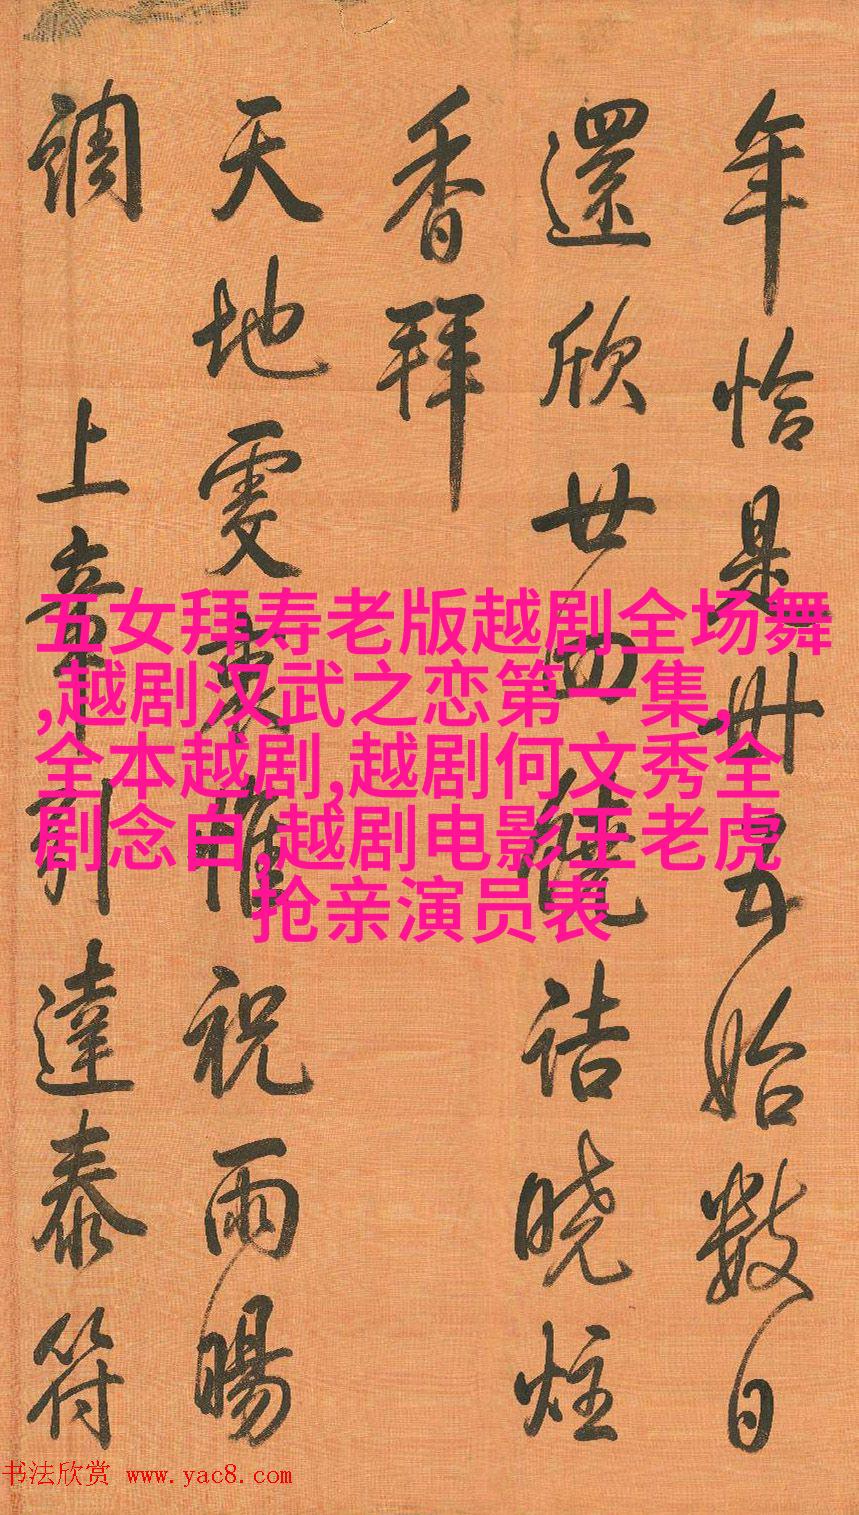 年恰是卅五始數日
還欣廿四詰曉炷
香拜
天地虔衷惟祝雨暘
調 上辛引達泰符
五女拜寿老版越剧全场舞
,越剧汉武之恋第一集,
全本越剧,越剧何文秀全
剧念白,越剧电影王老虎
抢亲演员表
书法欣赏 www.yac8.com